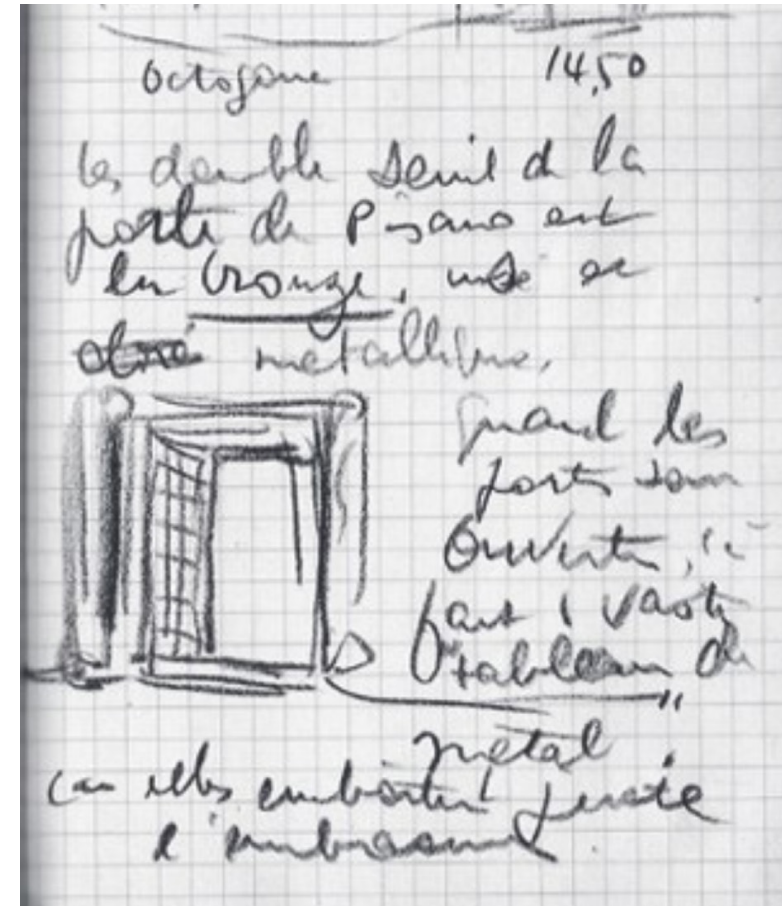 Octogone 14,50
le double seuil de la
porte de Pisano est
en bronze, usé et
métallique,
quand les
portes sont
ouvertes, il
faut 1 vaste
"tableau de
métal".
car elles emboitent juste
l'embrasure